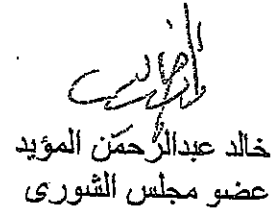 خالد عبدالرحمن المؤيد
عضو مجلس الشورى